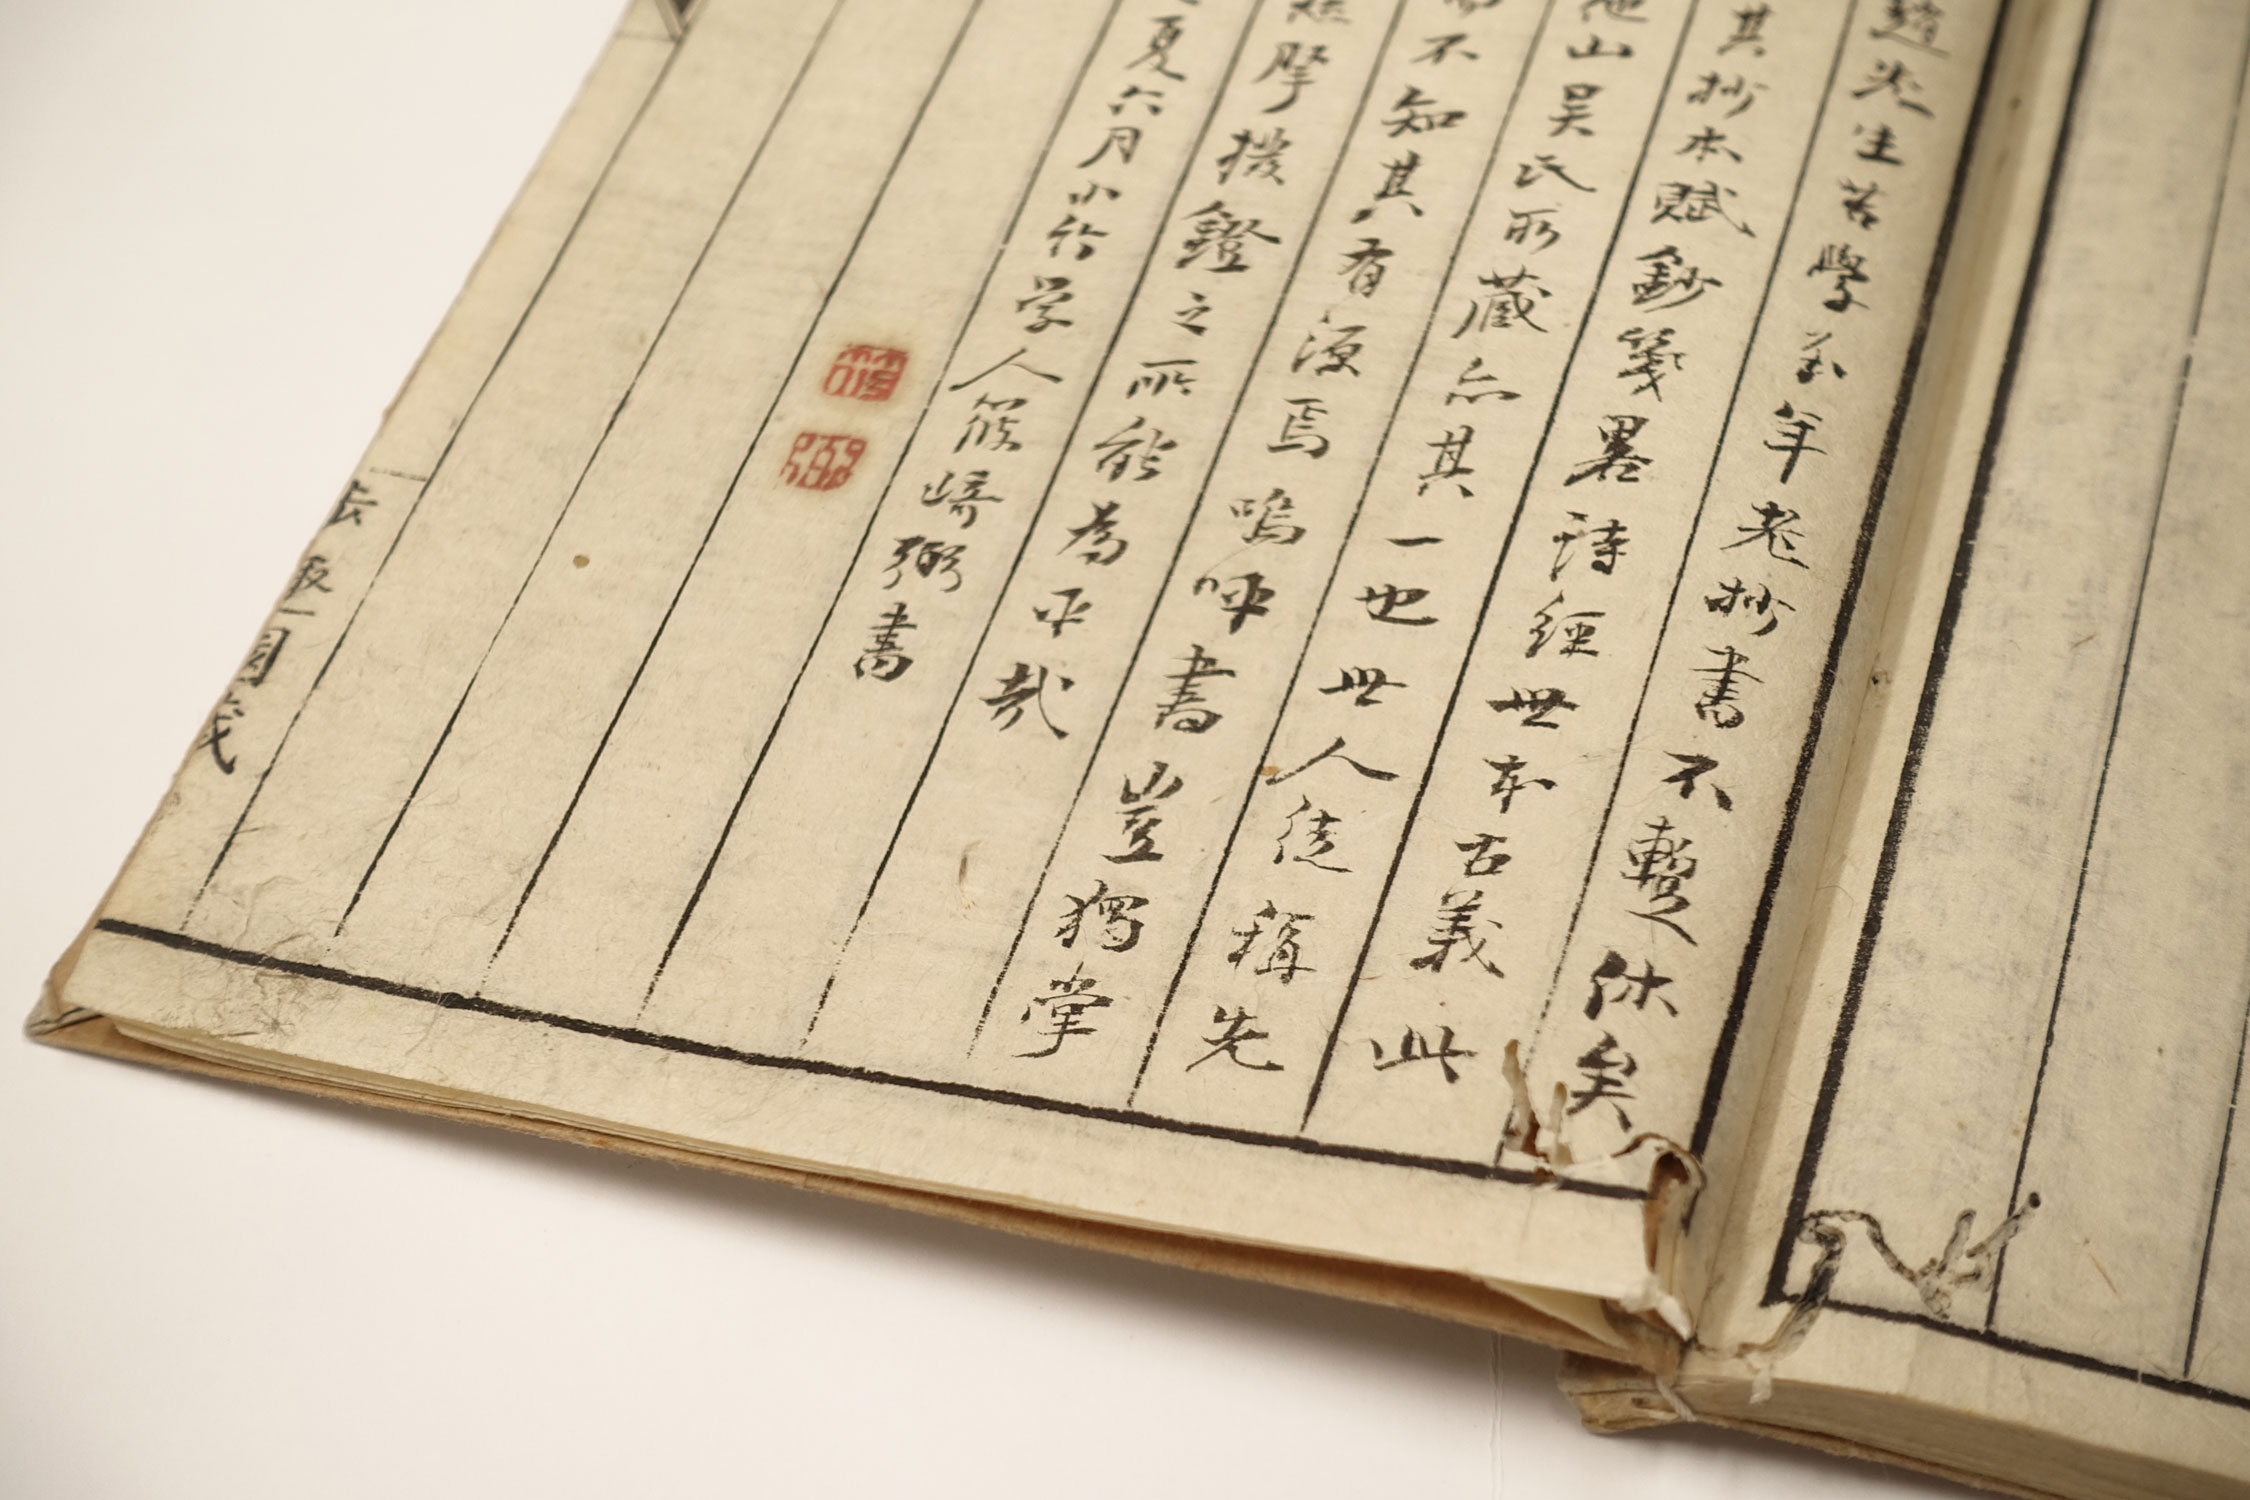 趙先生苦學至年老抄書不暫休矣
其抄本賦鈔箋畧詩經世本古義此
他山吳氏所藏亦其一也世人徒稱先
不知其有源焉嗚呼書豈獨掌
擘撥鐙之所能為乎哉
夏六月小竹学人筱崎弼書